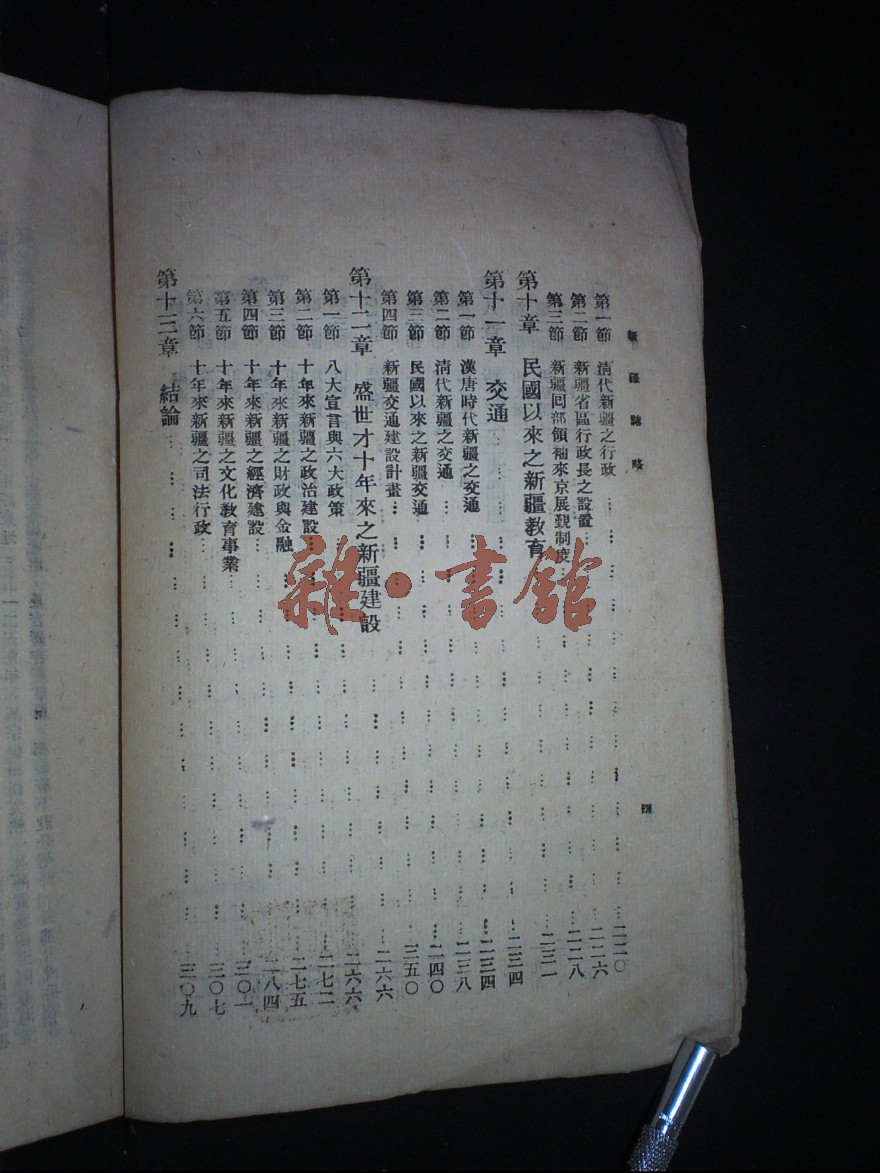 新疆誌略
四
第一節 清代新疆之行政 … 二二〇
第二節 新疆省區行政長之設置 … 二二六
第三節 新疆回部領袖來京展覲制度 … 二二八
第十章 民國以來之新疆教育 … 二三一
第十一章 交通 … 二三四
第一節 漢唐時代新疆之交通 … 二三四
第二節 清代新疆之交通 … 二三八
第三節 民國以來之新疆交通 … 二四〇
第四節 新疆交通建設計畫 … 三五〇
第十二章 盛世才十年來之新疆建設 … 二六六
第一節 八大宣言與六大政策 … 二六六
第二節 十年來新疆之政治建設 … 二七二
第三節 十年來新疆之財政與金融 … 二七五
第四節 十年來新疆之經濟建設 … 二八四
第五節 十年來新疆之文化教育事業 … 三〇一
第六節 十年來新疆之司法行政 … 三〇七
第十三章 結論 … 三〇九
雜·書館